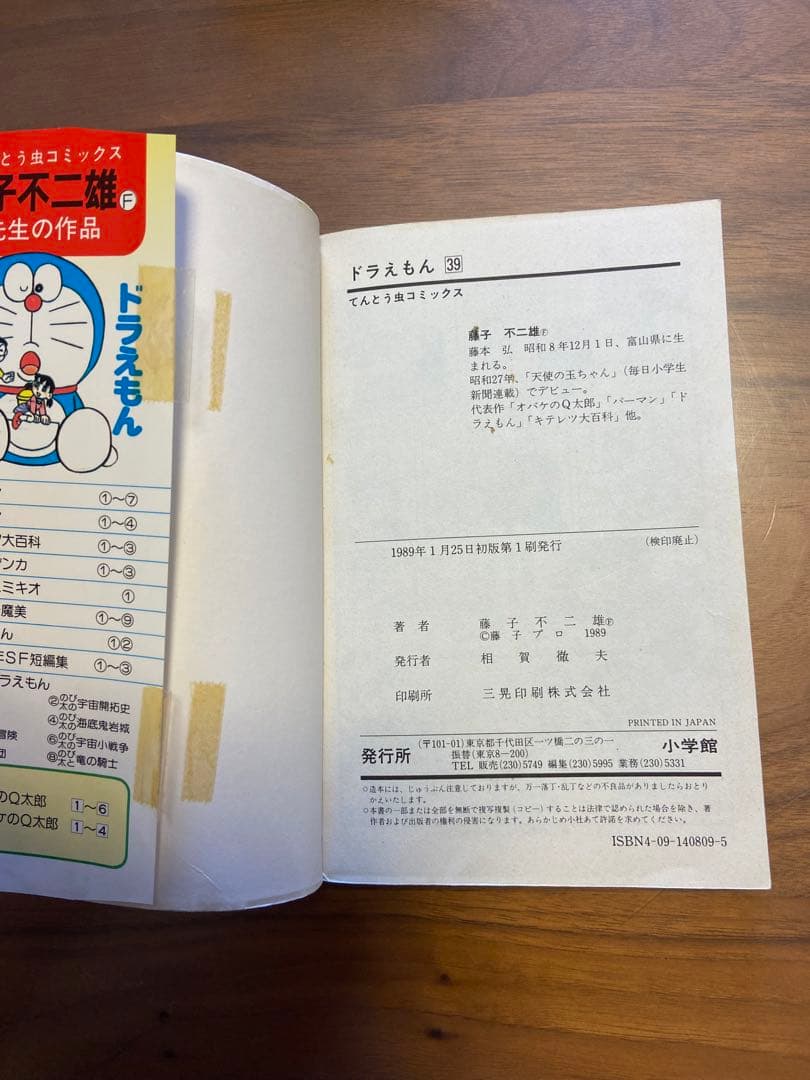 とう虫コミックス
子不二雄Ⓕ
先生の作品
ドラえもん
①〜⑦
①〜④
大百科 ①〜③
①〜③
ミキオ ①
魔美 ①〜⑨
ん ①②
SF短編集 ①〜③
ラえもん
②のび太の宇宙開拓史
④のび太の海底鬼岩城
冒険 ⑥のび太の宇宙小戦争
団 ⑧のび太と竜の騎士
のQ太郎 1〜6
ケのQ太郎 1〜4
ドラえもん 39
てんとう虫コミックス
藤子 不二雄Ⓕ
藤本 弘 昭和8年12月1日、富山県に生
まれる。
昭和27年、「天使の玉ちゃん」(毎日小学生
新聞連載)でデビュー。
代表作「オバケのQ太郎」「パーマン」「ド
ラえもん」「キテレツ大百科」他。
1989年1月25日初版第1刷発行 (検印廃止)
著者 藤子不二雄Ⓕ
©藤子プロ 1989
発行者 相賀徹夫
印刷所 三晃印刷株式会社
PRINTED IN JAPAN
発行所 (〒101-01)東京都千代田区一ツ橋二の三の一 小学館
振替(東京8-200)
TEL 販売(230)5749 編集(230)5995 業務(230)5331
○造本には、じゅうぶん注意しておりますが、万一落丁・乱丁などの不良品がありましたらおとり
かえいたします。
○本書の一部または全部を無断で複写複製(コピー)することは法律で認められた場合を除き、著
作者および出版者の権利の侵害になります。あらかじめ小社あて許諾を求めてください。
ISBN4-09-140809-5